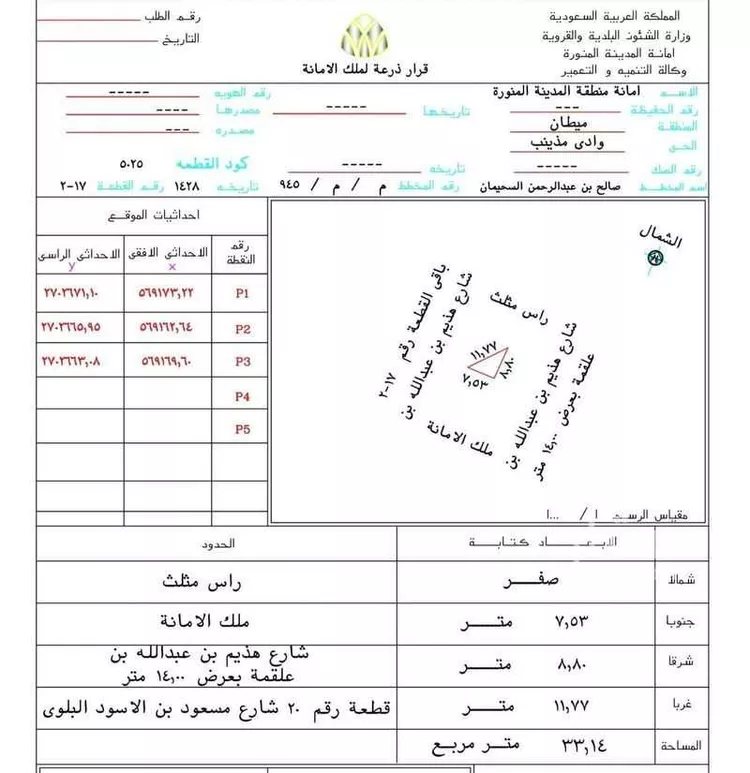 المملكة العربية السعودية
وزارة الشئون البلدية والقروية
امانة المدينة المنورة
وكالة التنميه و التعمير
قرار ذرعة لملك الامانة
رقم الطلب
التاريخ
الاسم امانة منطقة المدينة المنورة
رقم الحفيظة ---
تاريخها -----
رقم الهويه -----
مصدرها ----
المنطقة ميطان
مصدره ---
الحي وادى مذينب
رقم الصك -----
تاريخه -----
كود القطعه ٥٠٢٥
اسم المخطط صالح بن عبدالرحمن السحيمان
رقم المخطط ٩٤٥ / م / م
تاريخه ١٤٢٨
رقم القطعة ١٧-٢
احداثيات الموقع
رقم النقطة
الاحداثى الافقى x
الاحداثى الراسى y
P1 ٥٦٩١٧٣,٢٢ ٢٧٠٢٦٧١,١٠
P2 ٥٦٩١٦٢,٦٤ ٢٧٠٢٦٦٥,٩٥
P3 ٥٦٩١٦٩,٦٠ ٢٧٠٢٦٦٣,٠٨
P4
P5
الشمال
راس مثلث
باقى القطعة رقم ١٧-٢
شارع هذيم بن عبدالله بن
١١,٧٧
٨,٨٠
٧,٥٣
شارع هذيم بن عبدالله بن
علقمة بعرض ١٤,٠٠ متر
ملك الامانة
مقياس الرسم ١ / ...١
الابعاد كتابة
الحدود
شمالا صفر راس مثلث
جنوبا ٧,٥٣ متر ملك الامانة
شرقا ٨,٨٠ متر شارع هذيم بن عبدالله بن
علقمة بعرض ١٤,٠٠ متر
غربا ١١,٧٧ متر قطعة رقم ٢٠ شارع مسعود بن الاسود البلوى
المساحة ٣٣,١٤ متر مربع